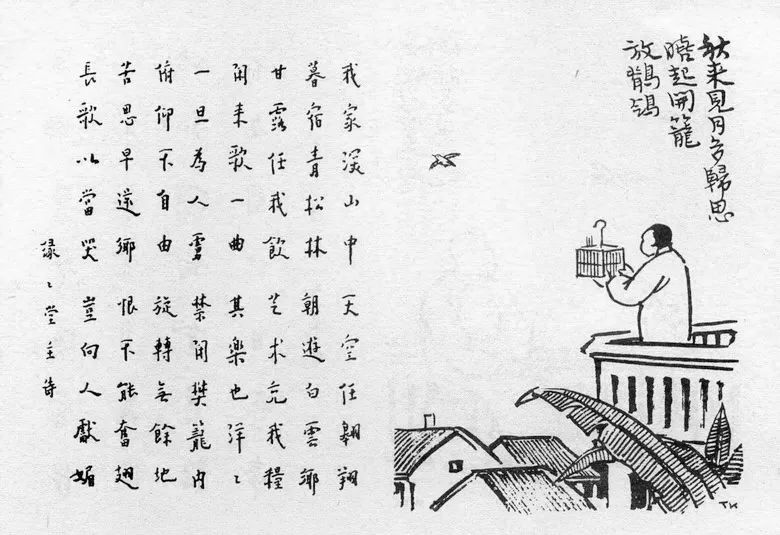 秋来見月多歸思
起開籠
放鵓鴿
我家深山中 天空任翱翔
暮宿青松林 朝遊白雲鄉
甘露任我飲 芝术充我糧
閒来歌一曲 其樂也洋々
一旦為人虜 禁閉樊籠内
俯仰不自由 旋轉無餘地
苦思早還鄉 恨不能奮翅
長歌以當哭 豈向人獻媚
緣々堂主詩
TK